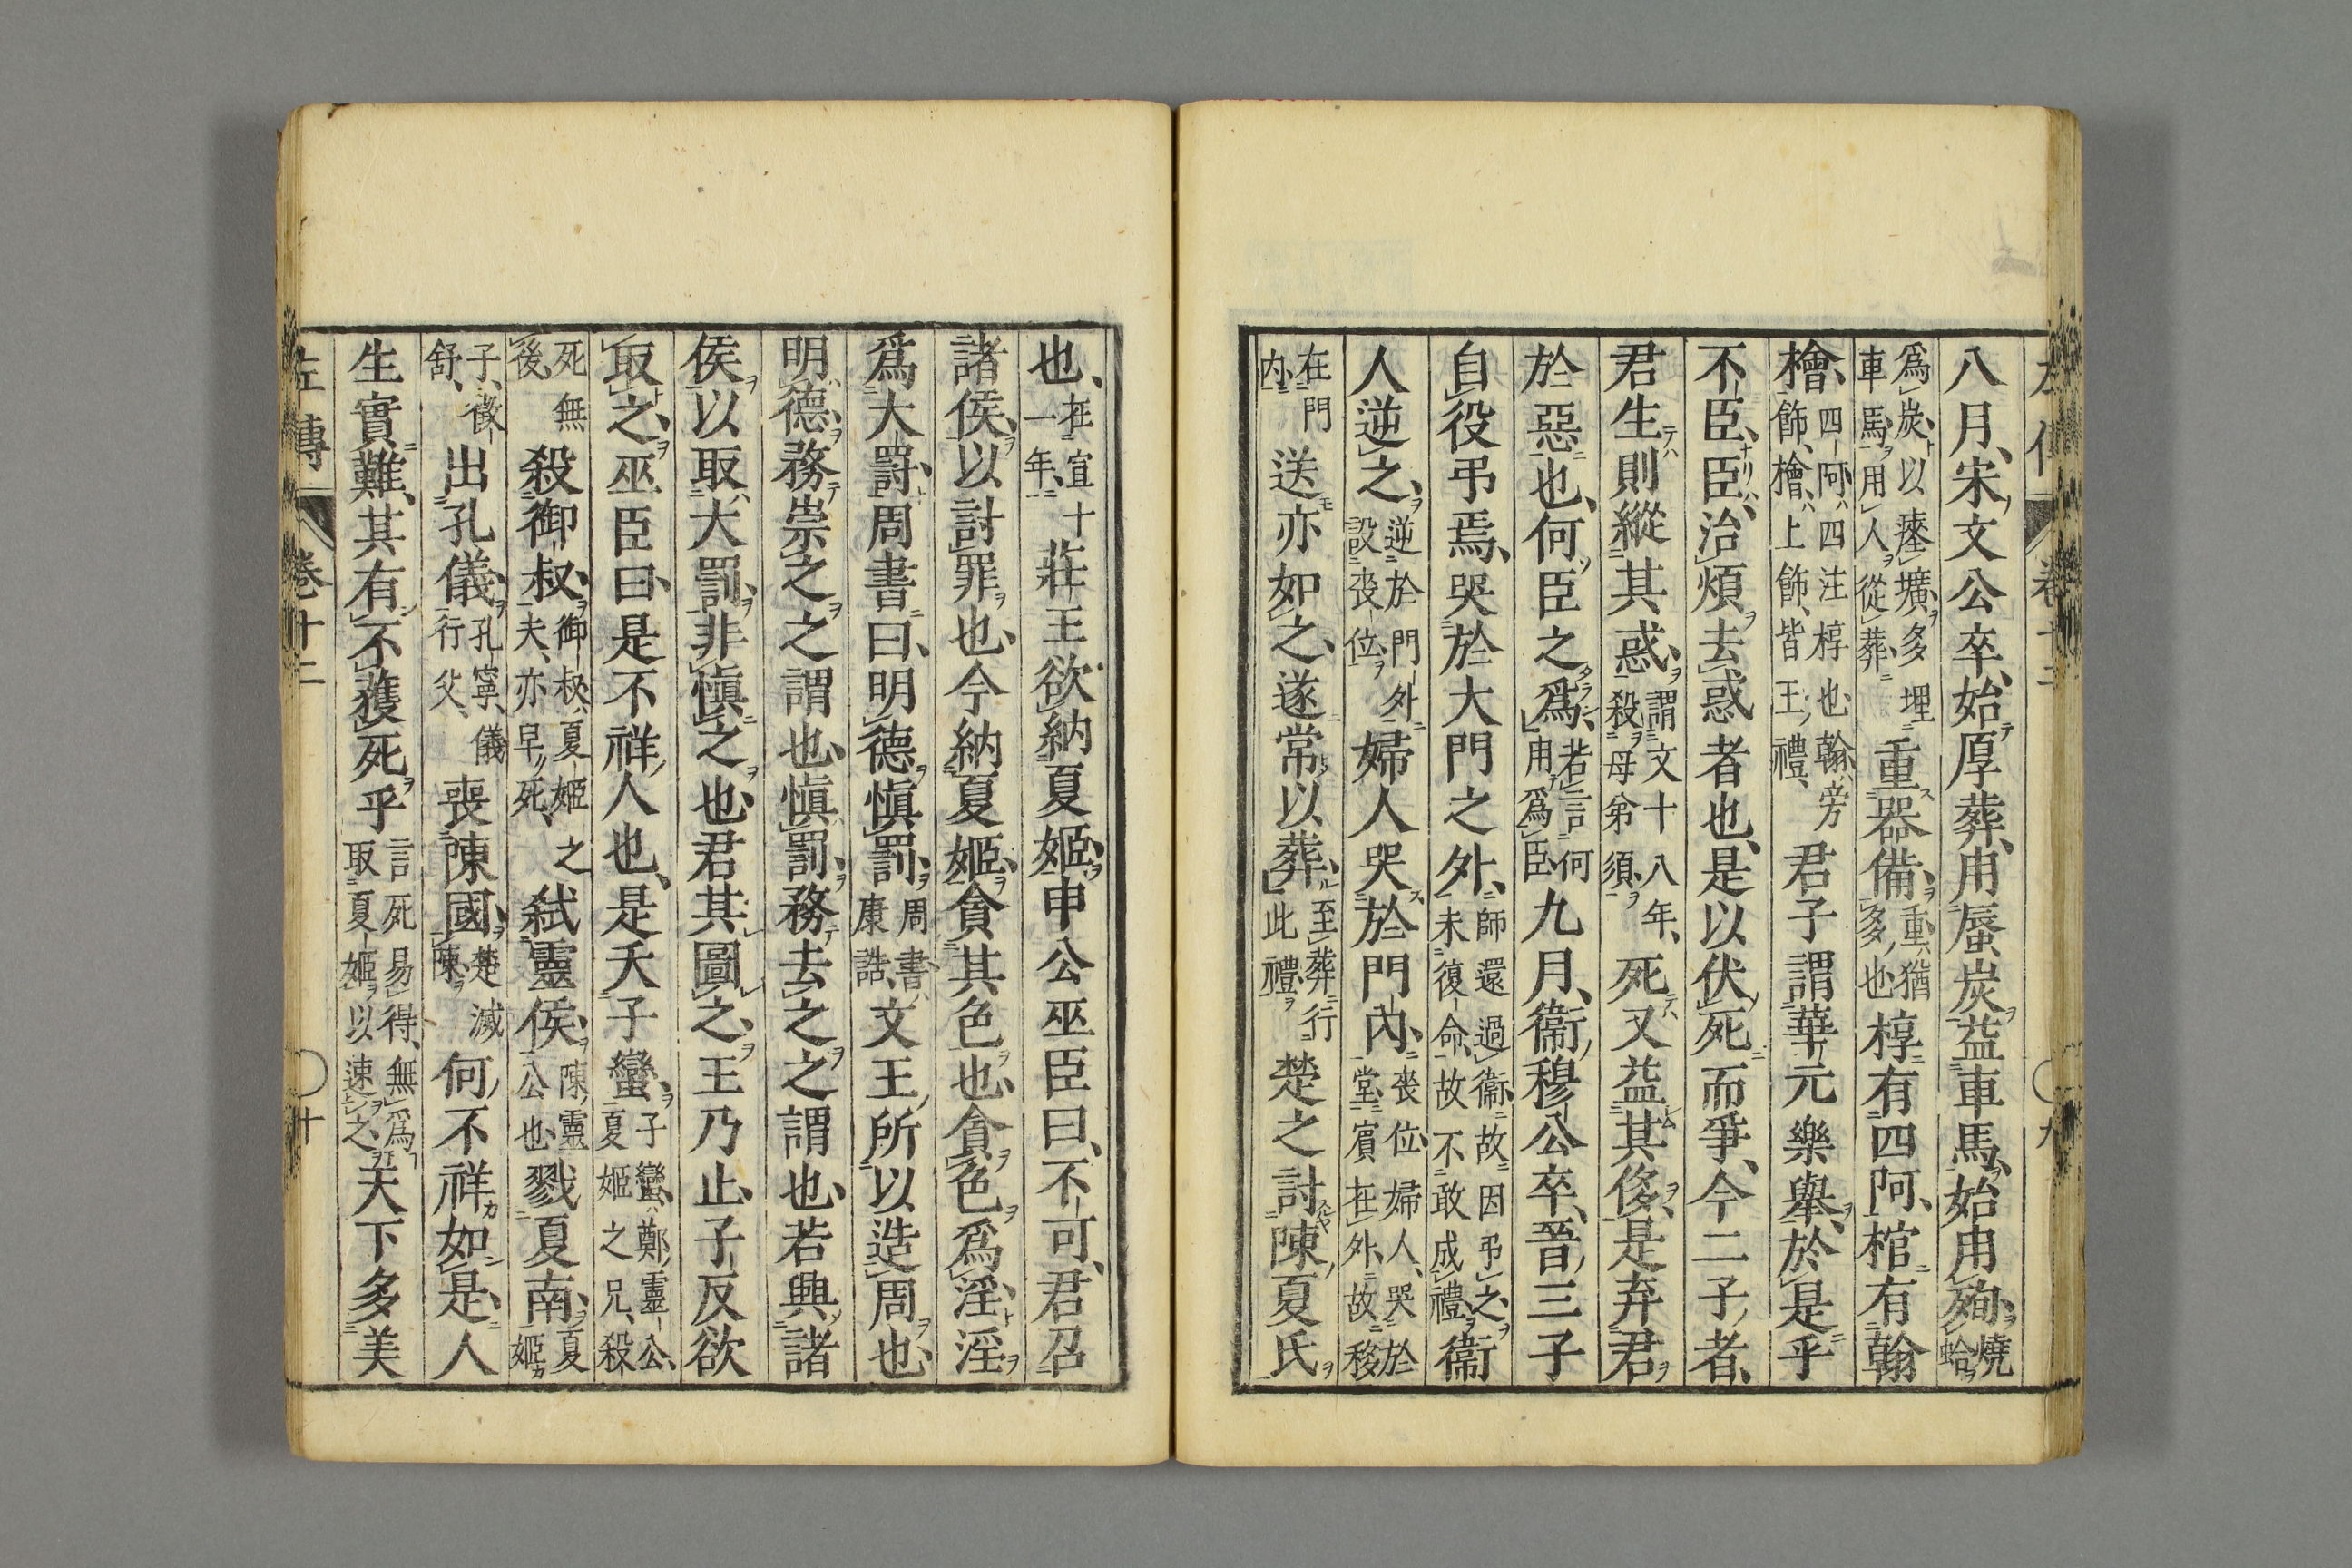 八月、宋文公卒、始厚葬、用蜃炭益車馬、始用殉、燒蛤
爲炭、以瘞壙、多埋車馬、用人從葬、重器備、重猶多也、椁有四阿、棺有翰
檜、四阿、四注椁也、翰、旁飾、檜、上飾、皆王禮、君子謂華元樂舉、於是乎
不臣、臣治煩去惑者也、是以伏死而爭、今二子者、
君生則縱其惑、謂文十八年、殺母弟須、死又益其侈、是弃君
於惡也、何臣之爲、若言何用爲臣、九月、衞穆公卒、晉三子
自役弔焉、哭於大門之外、師還過衞、故因弔之、未復命、故不敢成禮、衞
人逆之、逆於門外、設喪位、婦人哭於門內、喪位、婦人哭於堂、賓在外、故移
在門内、送亦如之、遂常以葬、至葬行此禮、楚之討陳夏氏
也、在宣十一年、莊王欲納夏姬、申公巫臣曰、不可、君召
諸侯、以討罪也、今納夏姬、貪其色也、貪色爲淫、淫
爲大罰、周書曰、明德愼罰、周書、康誥、文王所以造周也、
明德、務崇之之謂也、愼罰、務去之之謂也、若興諸
侯以取大罰、非愼之也、君其圖之、王乃止、子反欲
取之、巫臣曰、是不祥人也、是夭子蠻、子蠻、鄭靈公、夏姬之兄、殺
死無後、殺御叔、御叔、夏姬之夫、亦早死、弑靈侯、陳靈公也、戮夏南、夏姬
子、徵舒、出孔儀、孔寧、儀行父、喪陳國、楚滅陳、何不祥如是、人
生實難、其有不獲死乎、言死易得、無爲取夏姬以速之、天下多美
左傳 卷十二 十